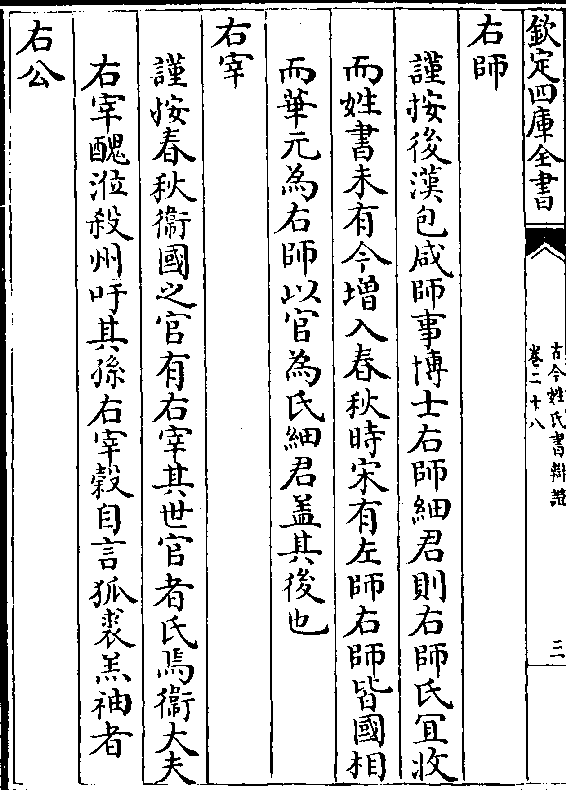 欽定四庫全書
古今姓氏書辯證
卷二十八
三
右師
謹按後漢包咸師事博士右師細君則右師氏宜收
而姓書未有今増入春秋時宋有左師右師皆國相
而華元為右師以官為氏細君盖其後也
右宰
謹按春秋衛國之官有右宰其世官者氏焉衛大夫
右宰醜涖殺州吁其孫右宰榖自言狐裘羔袖者
右公